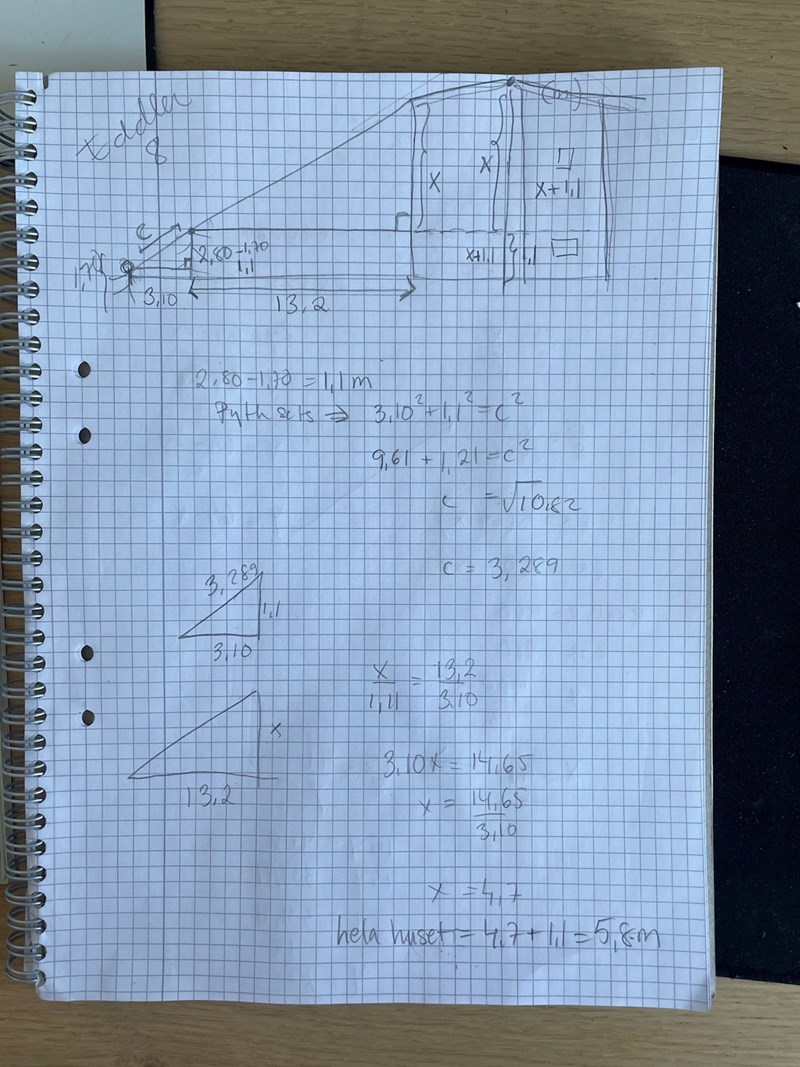 8
(m)
x
x
x+1,1
c
2,80-1,70
1,1
x+1,1
1,1
3,10
13,2
2,80-1,70 = 1,1 m
Pyth sats ⇒ 3,10² + 1,1² = c²
9,61 + 1,21 = c²
c = √10,82
c = 3,289
3,289
1,1
3,10
x/1,11 = 13,2/3,10
x
13,2
3,10x = 14,65
x = 14,65/3,10
x = 4,7
hela huset = 4,7 + 1,1 = 5,8 m